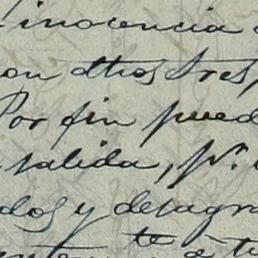 inocencia
on otros tres,
Por fin pued
salida, pr.
dos y desagra
te